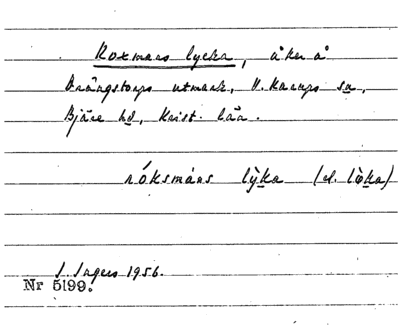 Roxmans lycka, åker å
Drängstorps utmark, V. Karups sn,
Bjäre hd, Krist. län.
róksmáns lỳka (el. lœ̀ka)
I. Ingers 1956.
Nr 5199.